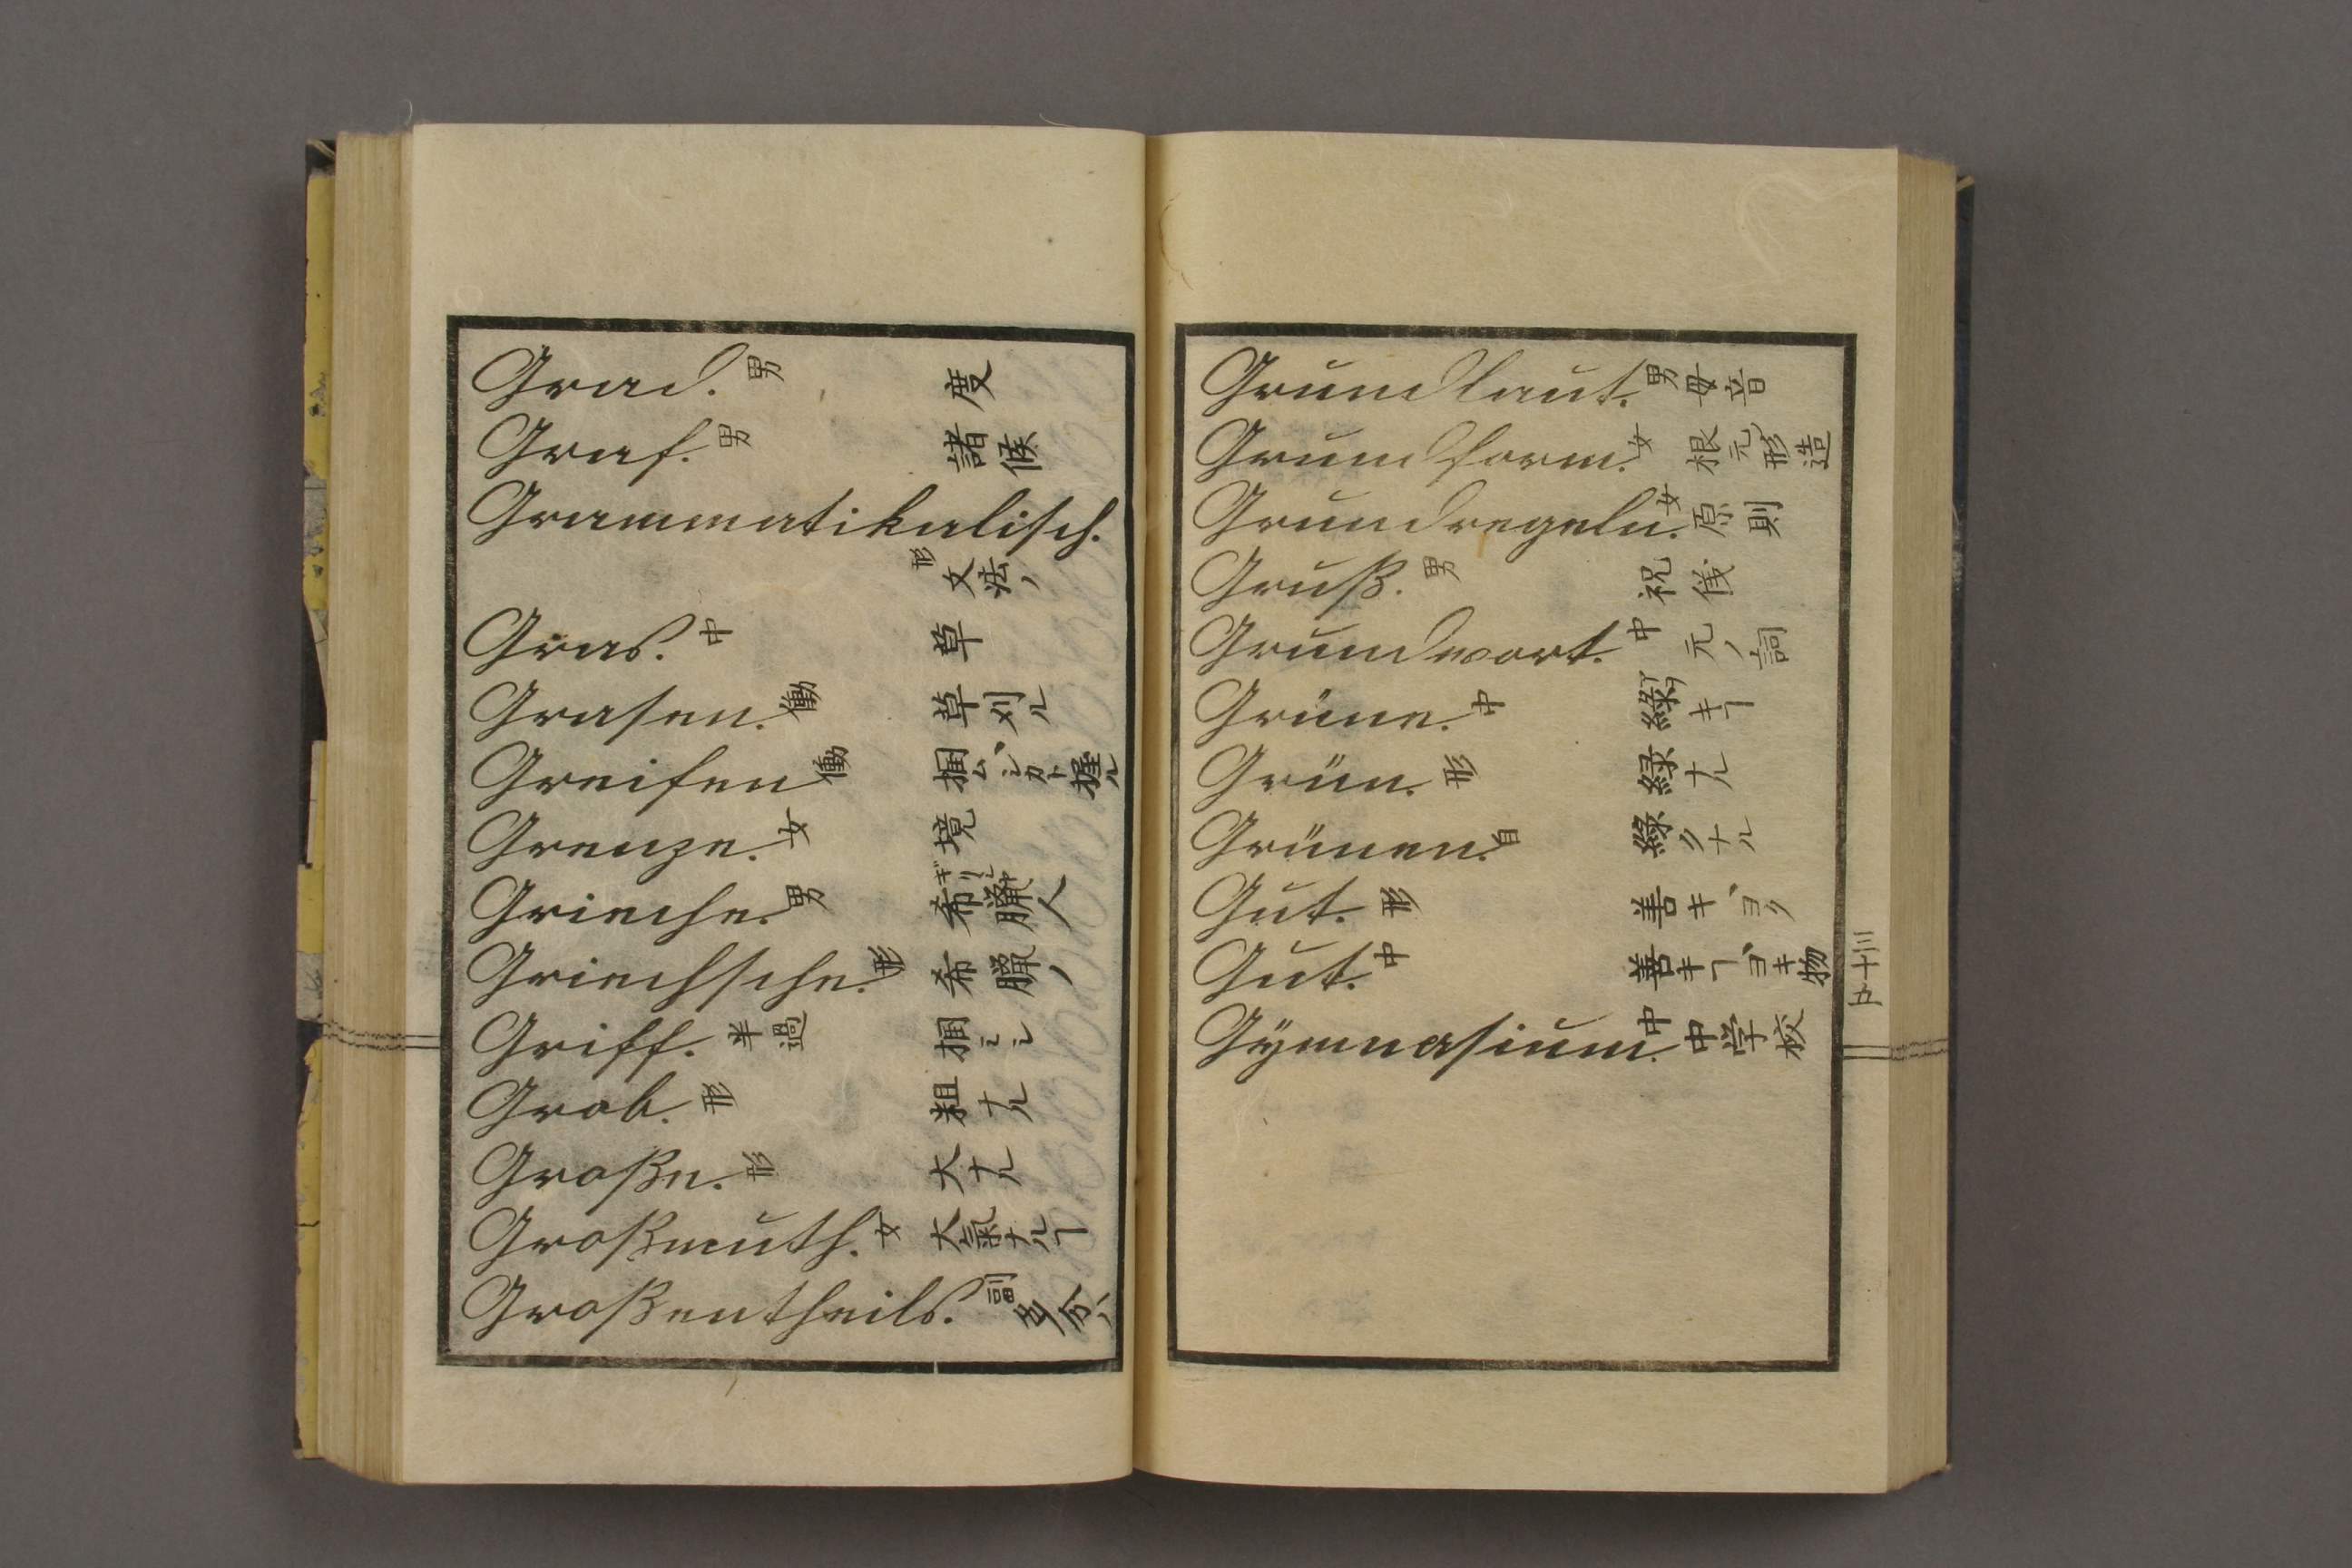 Grad. 男 度
Graf. 男 諸候
Grammatikalisch.
形 文法ノ
Gras. 中 草
Grasen. 働 草刈ル
Greifen 働 掴ム シカト握ル
Grenze. 女 境
Grieche. 男 希臘人
Griechsche. 形 希臘ノ
Griff. 半過 掴ミシ
Grob. 形 粗ナル
Große. 形 大ナル
Großmuth. 女 大氣ナルヿ
Großentheils. 副 多分ハ
Grundlaut. 男 母音
Grundform. 女 根元ノ形造
Grundregeln. 女 原則
Gruß. 男 祝儀
Grundwort. 中 元ノ詞
Grüne. 中 緑キヿ
Grün. 形 緑ナル
Grünen. 自 緑クナル
Gut. 形 善キ ヨク
Gut. 中 善キヿ ヨキ物
Gymnasium. 中 中学校
三十五